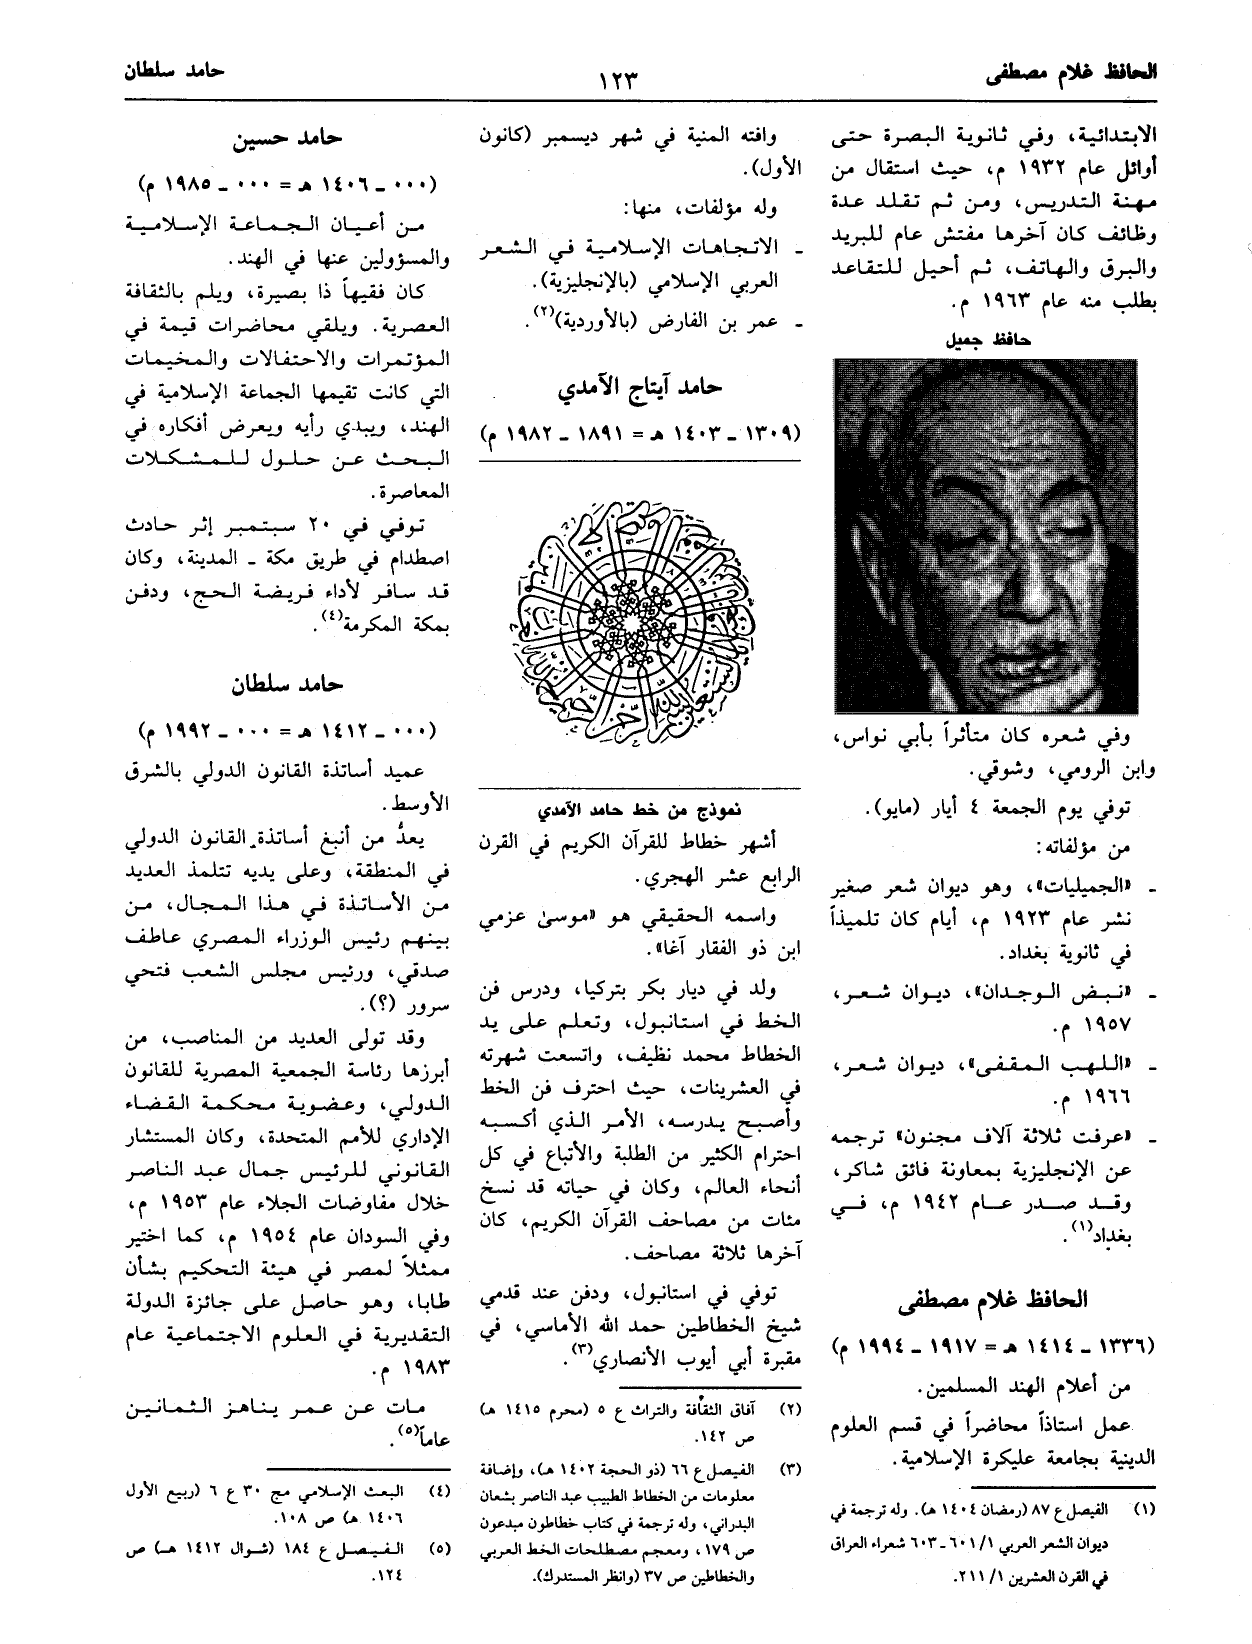 الحافظ غلام مصطفى
١٢٣
حامد سلطان
الابتدائية، وفي ثانوية البصرة حتى
أوائل عام ١٩٣٢ م، حيث استقال من
مهنة التدريس، ومن ثم تقلد عدة
وظائف كان آخرها مفتش عام للبريد
والبرق والهاتف، ثم أحيل للتقاعد
بطلب منه عام ١٩٦٣ م.
حافظ جميل
وفي شعره كان متأثراً بأبي نواس،
وابن الرومي، وشوقي.
توفي يوم الجمعة ٤ أيار (مايو).
من مؤلفاته:
ـ «الجميليات»، وهو ديوان شعر صغير
نشر عام ١٩٢٣ م، أيام كان تلميذاً
في ثانوية بغداد.
ـ «نبض الوجدان»، ديوان شعر،
١٩٥٧ م.
ـ «اللهب المقفى»، ديوان شعر،
١٩٦٦ م.
ـ «عرفت ثلاثة آلاف مجنون» ترجمه
عن الإنجليزية بمعاونة فائق شاكر،
وقد صدر عام ١٩٤٢ م، في
بغداد(١).
الحافظ غلام مصطفى
(١٣٣٦ ـ ١٤١٤ هـ = ١٩١٧ ـ ١٩٩٤ م)
من أعلام الهند المسلمين.
عمل استاذاً محاضراً في قسم العلوم
الدينية بجامعة عليكرة الإسلامية.
(١) الفيصل ع ٨٧ (رمضان ١٤٠٤ هـ). وله ترجمة في
ديوان الشعر العربي ١/ ٦٠١ ـ ٦٠٣ شعراء العراق
في القرن العشرين ١/ ٢١١.
وافته المنية في شهر ديسمبر (كانون
الأول).
وله مؤلفات، منها:
ـ الاتجاهات الإسلامية في الشعر
العربي الإسلامي (بالإنجليزية).
ـ عمر بن الفارض (بالأوردية)(٢).
حامد آيتاج الآمدي
(١٣٠٩ ـ ١٤٠٣ هـ = ١٨٩١ ـ ١٩٨٢ م)
نموذج من خط حامد الآمدي
أشهر خطاط للقرآن الكريم في القرن
الرابع عشر الهجري.
واسمه الحقيقي هو «موسىٰ عزمي
ابن ذو الفقار آغا».
ولد في ديار بكر بتركيا، ودرس فن
الخط في استانبول، وتعلم على يد
الخطاط محمد نظيف، واتسعت شهرته
في العشرينات، حيث احترف فن الخط
وأصبح يدرسه، الأمر الذي أكسبه
احترام الكثير من الطلبة والأتباع في كل
أنحاء العالم، وكان في حياته قد نسخ
مئات من مصاحف القرآن الكريم، كان
آخرها ثلاثة مصاحف.
توفي في استانبول، ودفن عند قدمي
شيخ الخطاطين حمد الله الأماسي، في
مقبرة أبي أيوب الأنصاري(٣).
(٢) آفاق الثقافة والتراث ع ٥ (محرم ١٤١٥ هـ)
ص ١٤٢.
(٣) الفيصل ع ٦٦ (ذو الحجة ١٤٠٢ هـ)، وإضافة
معلومات من الخطاط الطبيب عبد الناصر بشعان
البدراني، وله ترجمة في كتاب خطاطون مبدعون
ص ١٧٩، ومعجم مصطلحات الخط العربي
والخطاطين ص ٣٧ (وانظر المستدرك).
حامد حسين
(٠٠٠ ـ ١٤٠٦ هـ = ٠٠٠ ـ ١٩٨٥ م)
من أعيان الجماعة الإسلامية
والمسؤولين عنها في الهند.
كان فقيهاً ذا بصيرة، ويلم بالثقافة
العصرية. ويلقي محاضرات قيمة في
المؤتمرات والاحتفالات والمخيمات
التي كانت تقيمها الجماعة الإسلامية في
الهند، ويبدي رأيه ويعرض أفكاره في
البحث عن حلول للمشكلات
المعاصرة.
توفي في ٢٠ سبتمبر إثر حادث
اصطدام في طريق مكة ـ المدينة، وكان
قد سافر لأداء فريضة الحج، ودفن
بمكة المكرمة(٤).
حامد سلطان
(٠٠٠ ـ ١٤١٢ هـ = ٠٠٠ ـ ١٩٩٢ م)
عميد أساتذة القانون الدولي بالشرق
الأوسط.
يعدُّ من أنبغ أساتذة القانون الدولي
في المنطقة، وعلى يديه تتلمذ العديد
من الأساتذة في هذا المجال، من
بينهم رئيس الوزراء المصري عاطف
صدقي، ورئيس مجلس الشعب فتحي
سرور (؟).
وقد تولى العديد من المناصب، من
أبرزها رئاسة الجمعية المصرية للقانون
الدولي، وعضوية محكمة القضاء
الإداري للأمم المتحدة، وكان المستشار
القانوني للرئيس جمال عبد الناصر
خلال مفاوضات الجلاء عام ١٩٥٣ م،
وفي السودان عام ١٩٥٤ م، كما اختير
ممثلاً لمصر في هيئة التحكيم بشأن
طابا، وهو حاصل على جائزة الدولة
التقديرية في العلوم الاجتماعية عام
١٩٨٣ م.
مات عن عمر يناهز الثمانين
عاماً(٥).
(٤) البعث الإسلامي مج ٣٠ ع ٦ (ربيع الأول
١٤٠٦ هـ) ص ١٠٨.
(٥) الفيصل ع ١٨٤ (شوال ١٤١٢ هـ) ص
١٢٤.